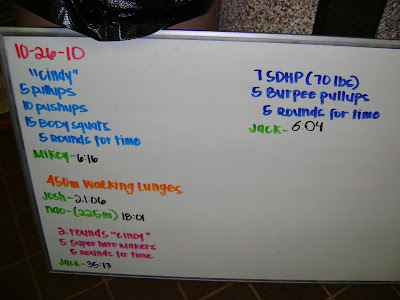 10-26-10
"cindy"
5 pullups
10 pushups
15 Body squats
5 Rounds for time
Mikey- 6:16
450m Walking Lunges
Josh- 21:06
nao- (225m) 18:01
2 rounds "cindy"
5 super hero Makers
5 Rounds for time
Jack- 35:13
7 SDHP (70 lbs)
5 Burpee pullups
5 Rounds for time
Jack- 6:04